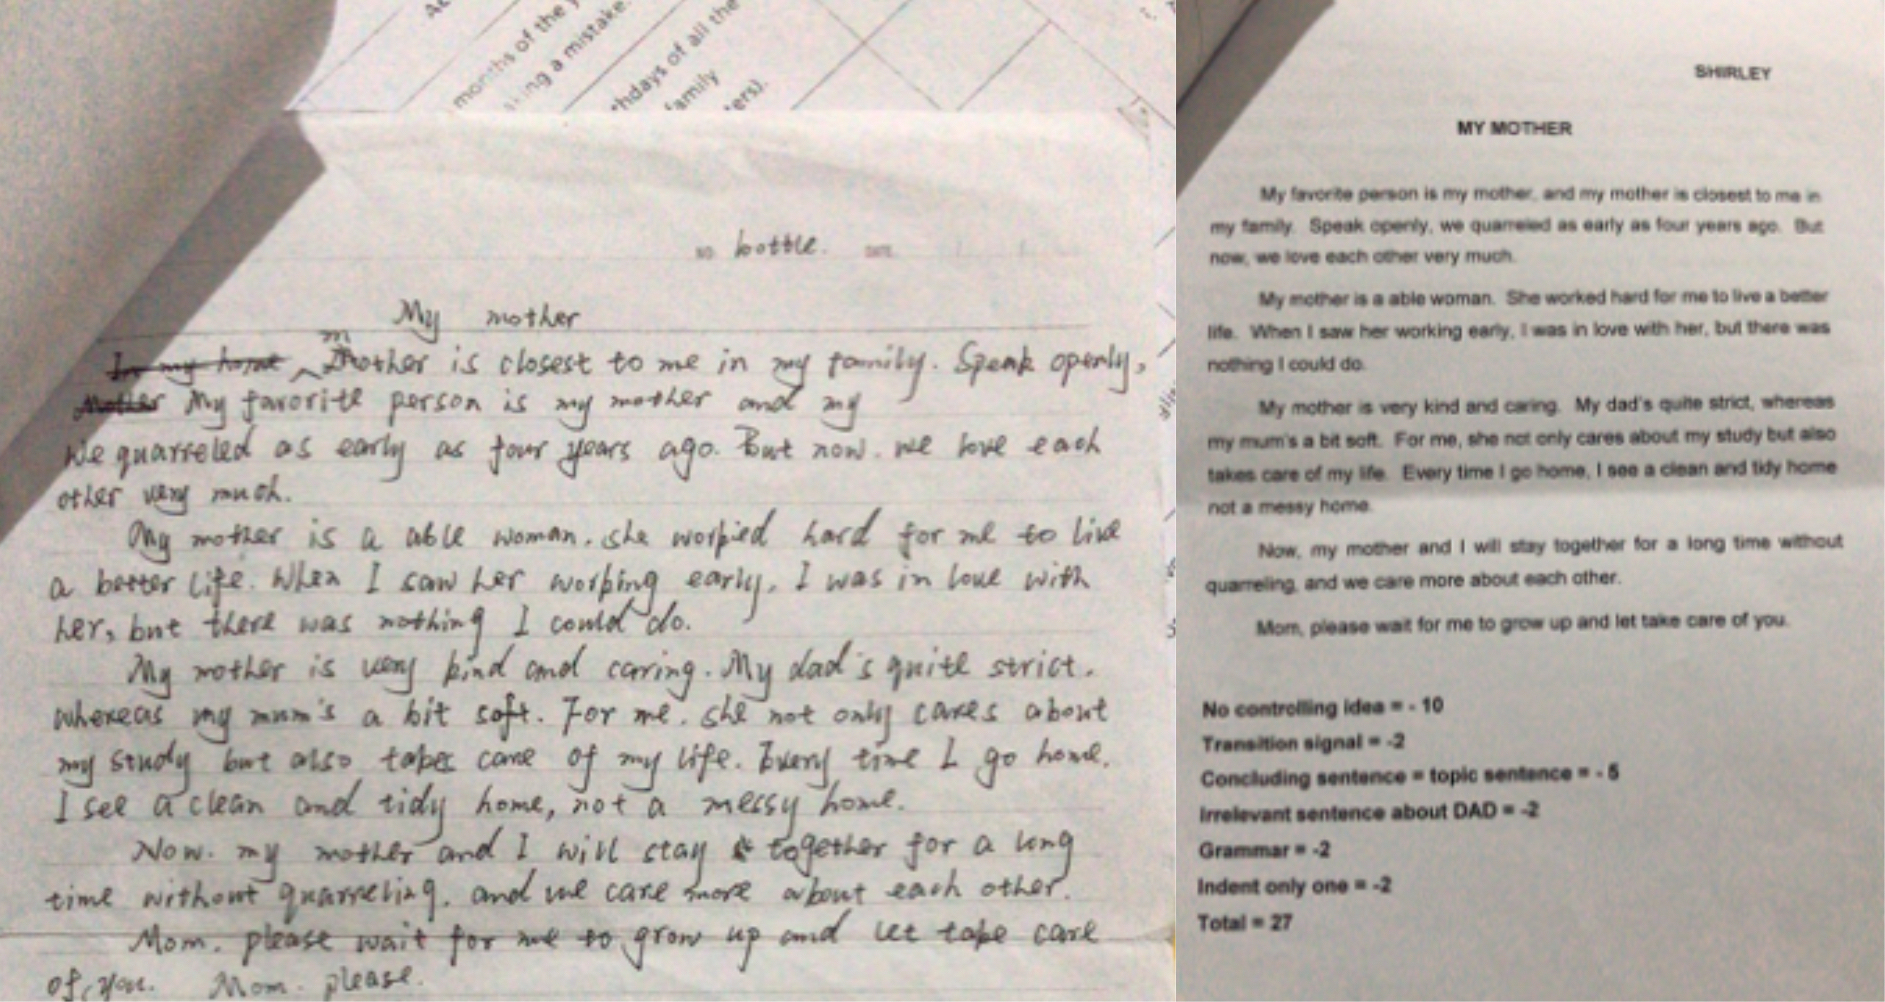 months of the y
king a mistake.
thdays of all the
family
ers).
NO. bottle. DATE
My mother
In my home m Mother is closest to me in my family. Speak openly,
Mother My favorite person is my mother and my
We quarreled as early as four years ago. But now. we love each
other very much.
My mother is a able woman. she worked hard for me to live
a better life. When I saw her working early, I was in love with
her, but there was nothing I could do.
My mother is very kind and caring. My dad's quite strict.
whereas my mum's a bit soft. For me. she not only cares about
my study but also takes care of my life. Every time I go home.
I see a clean and tidy home, not a messy home.
Now. my mother and I will stay together for a long
time without quarreling. and we care more about each other.
Mom. please wait for me to grow up and let take care
of you. Mom. please.
SHIRLEY
MY MOTHER
My favorite person is my mother, and my mother is closest to me in
my family. Speak openly, we quarreled as early as four years ago. But
now, we love each other very much.
My mother is a able woman. She worked hard for me to live a better
life. When I saw her working early, I was in love with her, but there was
nothing I could do.
My mother is very kind and caring. My dad's quite strict, whereas
my mum's a bit soft. For me, she not only cares about my study but also
takes care of my life. Every time I go home, I see a clean and tidy home
not a messy home.
Now, my mother and I will stay together for a long time without
quarreling, and we care more about each other.
Mom, please wait for me to grow up and let take care of you.
No controlling idea = - 10
Transition signal = -2
Concluding sentence = topic sentence = - 5
Irrelevant sentence about DAD = -2
Grammar = -2
Indent only one = -2
Total = 27